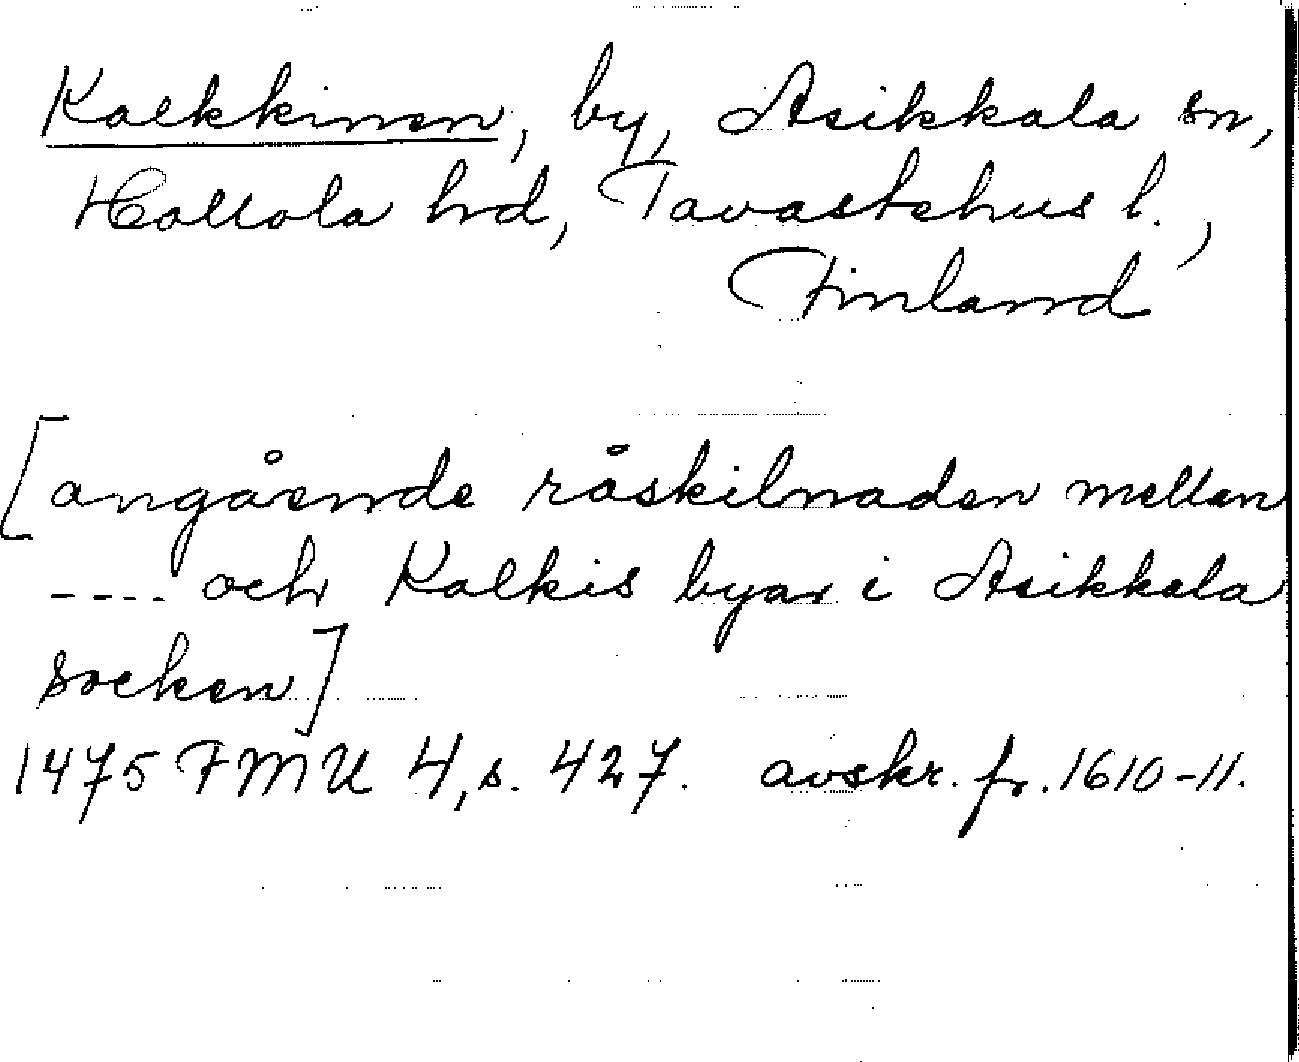 Kalkkinen, by, Asikkala sn,
Hollola hrd, Tavastehus l.,
Finland
[angående råskilnaden mellan
---- och Kalkis byar i Asikkala
socken]
1475 FMU 4, s. 427. avskr. fr. 1610-11.